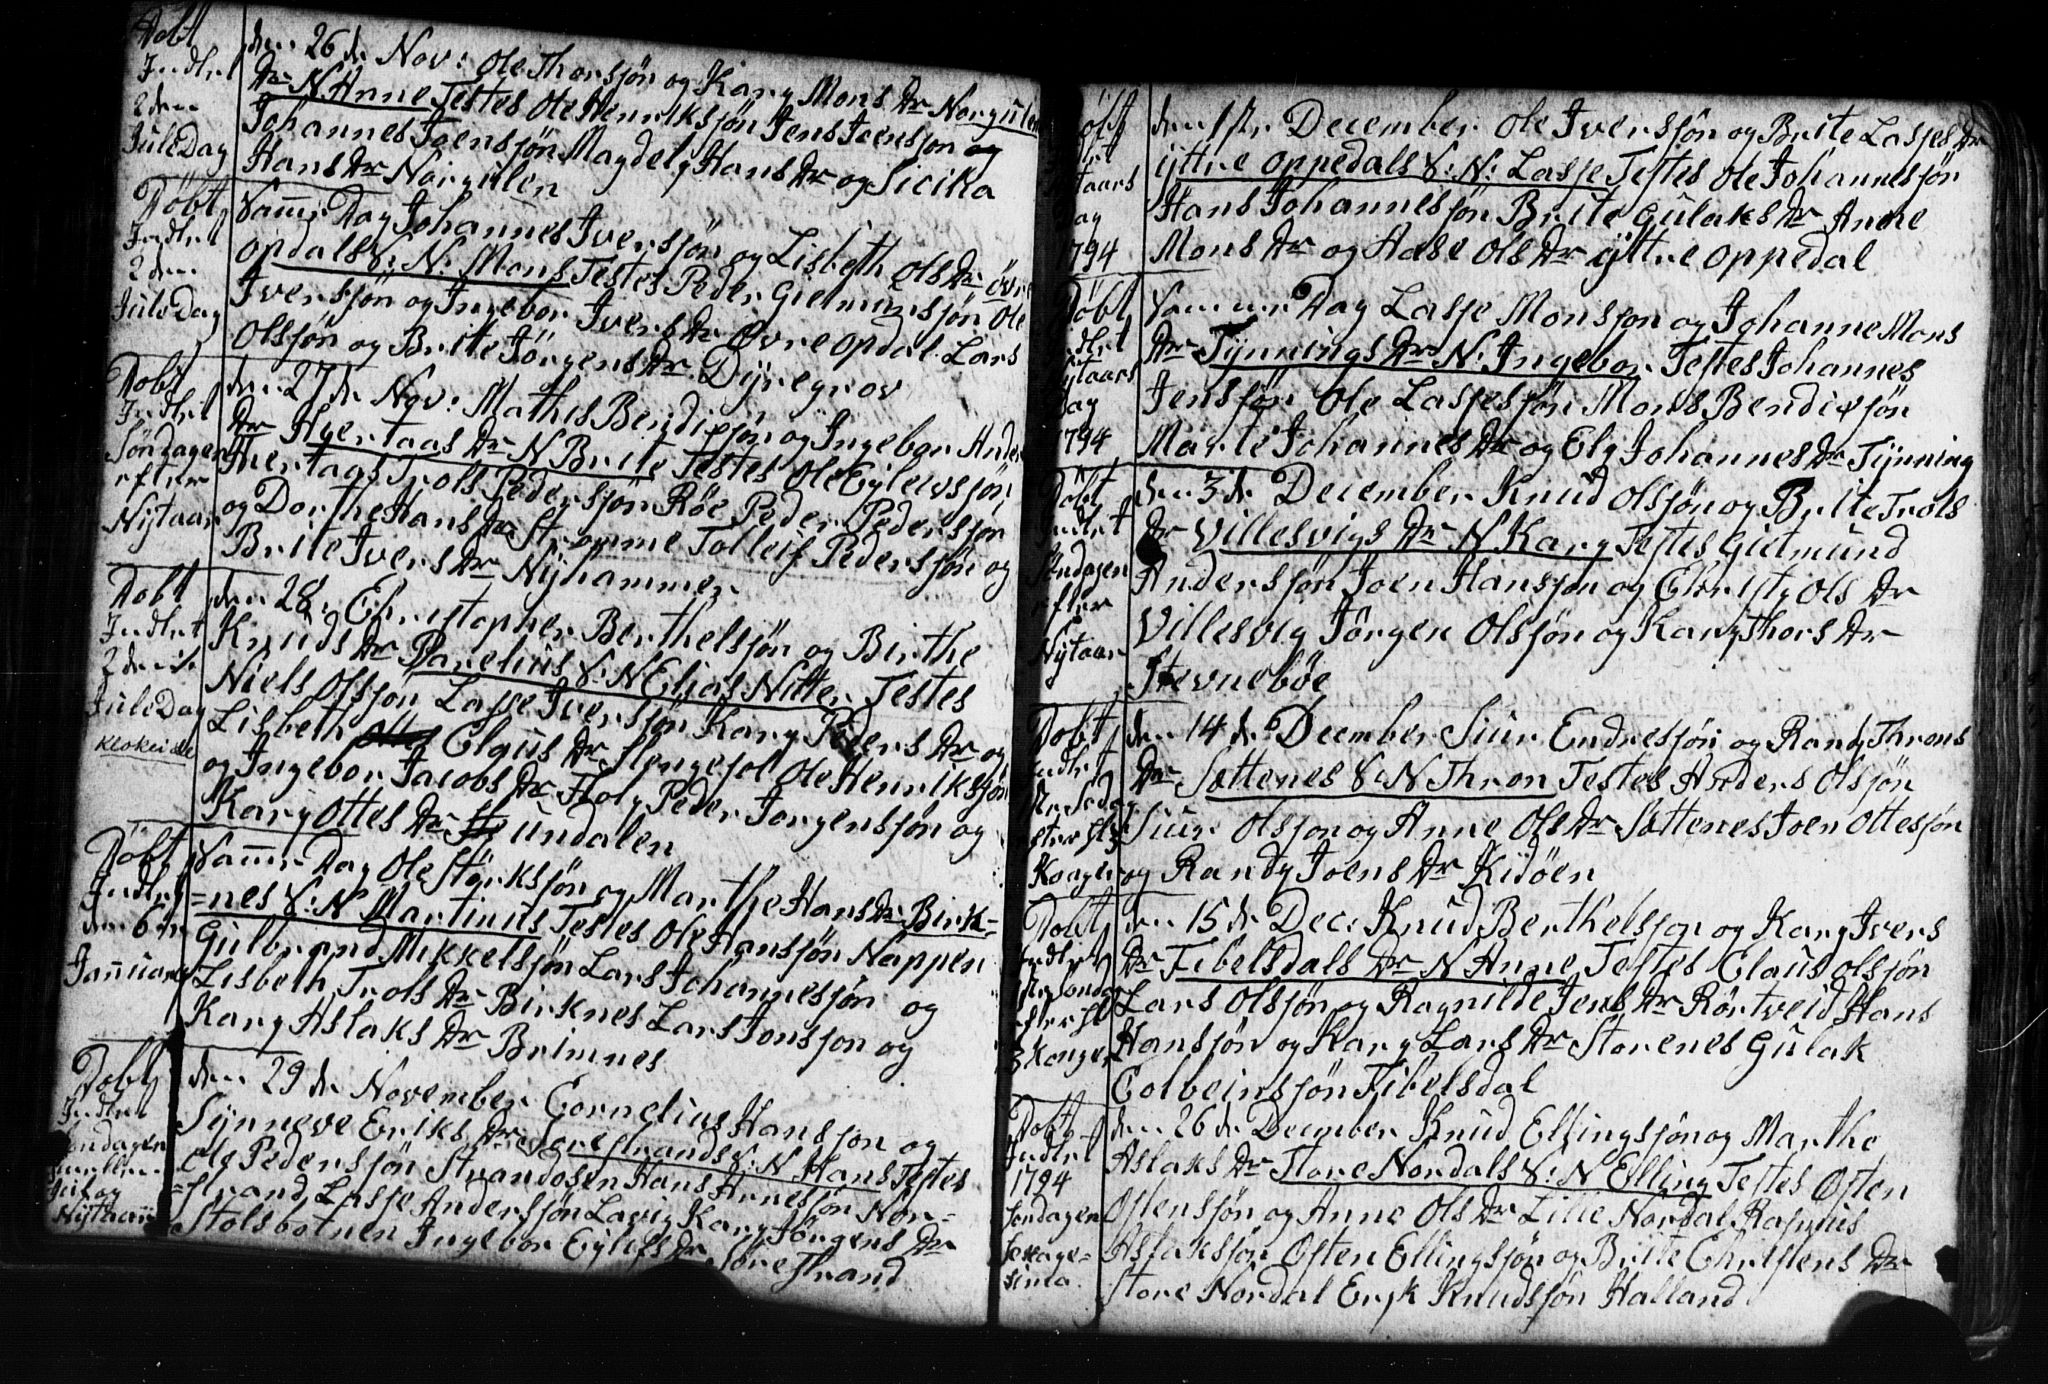 Døbt
Indlet
2den
JuleDag
den 26de Nov: Ole Thorsjøn og Kary Mons Dr Norgulen
Dr N. Anne Testes Ole Henriksjøn Jens Joensjøn og
Johannes Joensjøn Magdely Hans Dr og Sicika
Hans Dr Norgulen
Døbt
Indlet
2den
JuleDag
Samme Dag Johannes Iversjøn og Lisbeth Ols Dr övre
Opdals S: N: Mons Testes Peder Gietmunsjøn Ole
Iversjøn og Ingebor Ivers Dr Øvre Opdal Lars
Olsjøn og Brite Jørgens Dr Dyregrov
Døbt
Indlet
Søndagen
efter
Nytaar
den 27de Nov: Mathis Bendixsjøn og Ingebor Anders
Dr Hiertaas Dr N Brite Testes Ole Eylevsjøn
Hiertaas Trols Pedersjøn Røe Peder Pedersjøn
og Dorthe Hans Dr Strømme Tolleif Pedersjøn og
Brite Ivers Dr Nyhammer
Døbt
Indlet
2den
JuleDag
den 28. Christopher Berthelsjøn og Birthe
Knuds Dr Parelius S: N Elias Nitter Testes
Niels Olsjøn Lasse Iversjøn Kary Peders Dr og
Lisbeth Claus Dr Ole Henriksjøn
og Ingebor Jacobs Dr Peder Jørgensjøn og
Kary Ottes Dr undalen
Døbt
Indlet
den 6te
Januarii
Samme Dag Ole Størksjøn og Marthe Hans Dr Birk-
=nes S: N Martinus Testes Ole Hansjøn Nappen
Gulbrand Mikkelsjøn Lars Johannesjøn og
Lisbeth Trols Dr Birknes Lars Jonsjøn og
Kary Aslaks Dr Brimnes
Døbt
Indlet
Søndagen
Juul og
Nytaar
den 29de November Cornelius Hansjøn og
Synneve Eriks Dr Sørestrands S: N Hans Testes
Ole Pedersjøn Strandosen Hans Arnesjøn Nor-
=strand Lasse Andersjøn Lavig Kary Jørgens Dr
Stolsbotnen Ingebor Eylefs Dr Sørestrand
Døbt
Nytaars
Dag
1794
den 1ste December Ole Iversjøn og Brite Lasses Dr
yttre Oppedals S: N: Lasse Testes Ole Johannesjøn
Hans Johannesjøn Brite Gulaks Dr Anne
Mons Dr og Hase Ols Dr yttre Oppedal
Døbt
Indlet
Nytaars
Dag
1794
Samme Dag Lasse Monsjøn og Johanne Mons
Dr Tynnings Dr N. Ingebor Testes Johannes
Jensjøn Ole Lassesjøn Mons Bendixsjøn
Marte Johannes Dr og Ely Johannes Dr Tynning
Døbt
Indlet
Søndagen
efter
Nytaar
den 3de December Knud Olsjøn og Brite Trols
Dr Villesvigs Dr N Kary Testes Gietmund
Andersjøn Joen Hansjøn og Christy Ols Dr
Villesvig Jørgen Olsjøn og Kary Thors Dr
Stevnebøe
Døbt
Indlet
efter
Konger
den 14de December Siur Endresjøn og Randy Throns
Dr Sættenes S: N Thron Testes Anders Olsjøn
Siur Olsjøn og Anne Ols Dr Sættenes Joen Ottesjøn
og Randy Joens Dr Kidøen
Døbt
Indlet
efter Hl
3 Konger
den 15de Dec: Knud Berthelsjøn og Kary Ivers
Dr Fibelsdals Dr N Anne Testes Claus Olsjøn
Lars Olsjøn og Ragnilde Jens Dr Rörtveid Hans
Hansjøn og Kary Lars Dr Storenes Gulak
Colbeinsjøn Fibelsdal
Døbt
Indlet
1794
Søndagen
Sexage-
sima
den 26de December Knud Ellingsjøn og Marthe
Aslaks Dr Store Nordals S: N Elling Testes Østen
Østensjøn og Anne Ols Dr Lille Nordal Rasmus
Aslaksjøn Østen Ellingsjøn og Brite Christens Dr
Store Nordal Erik Knudsjøn Halland